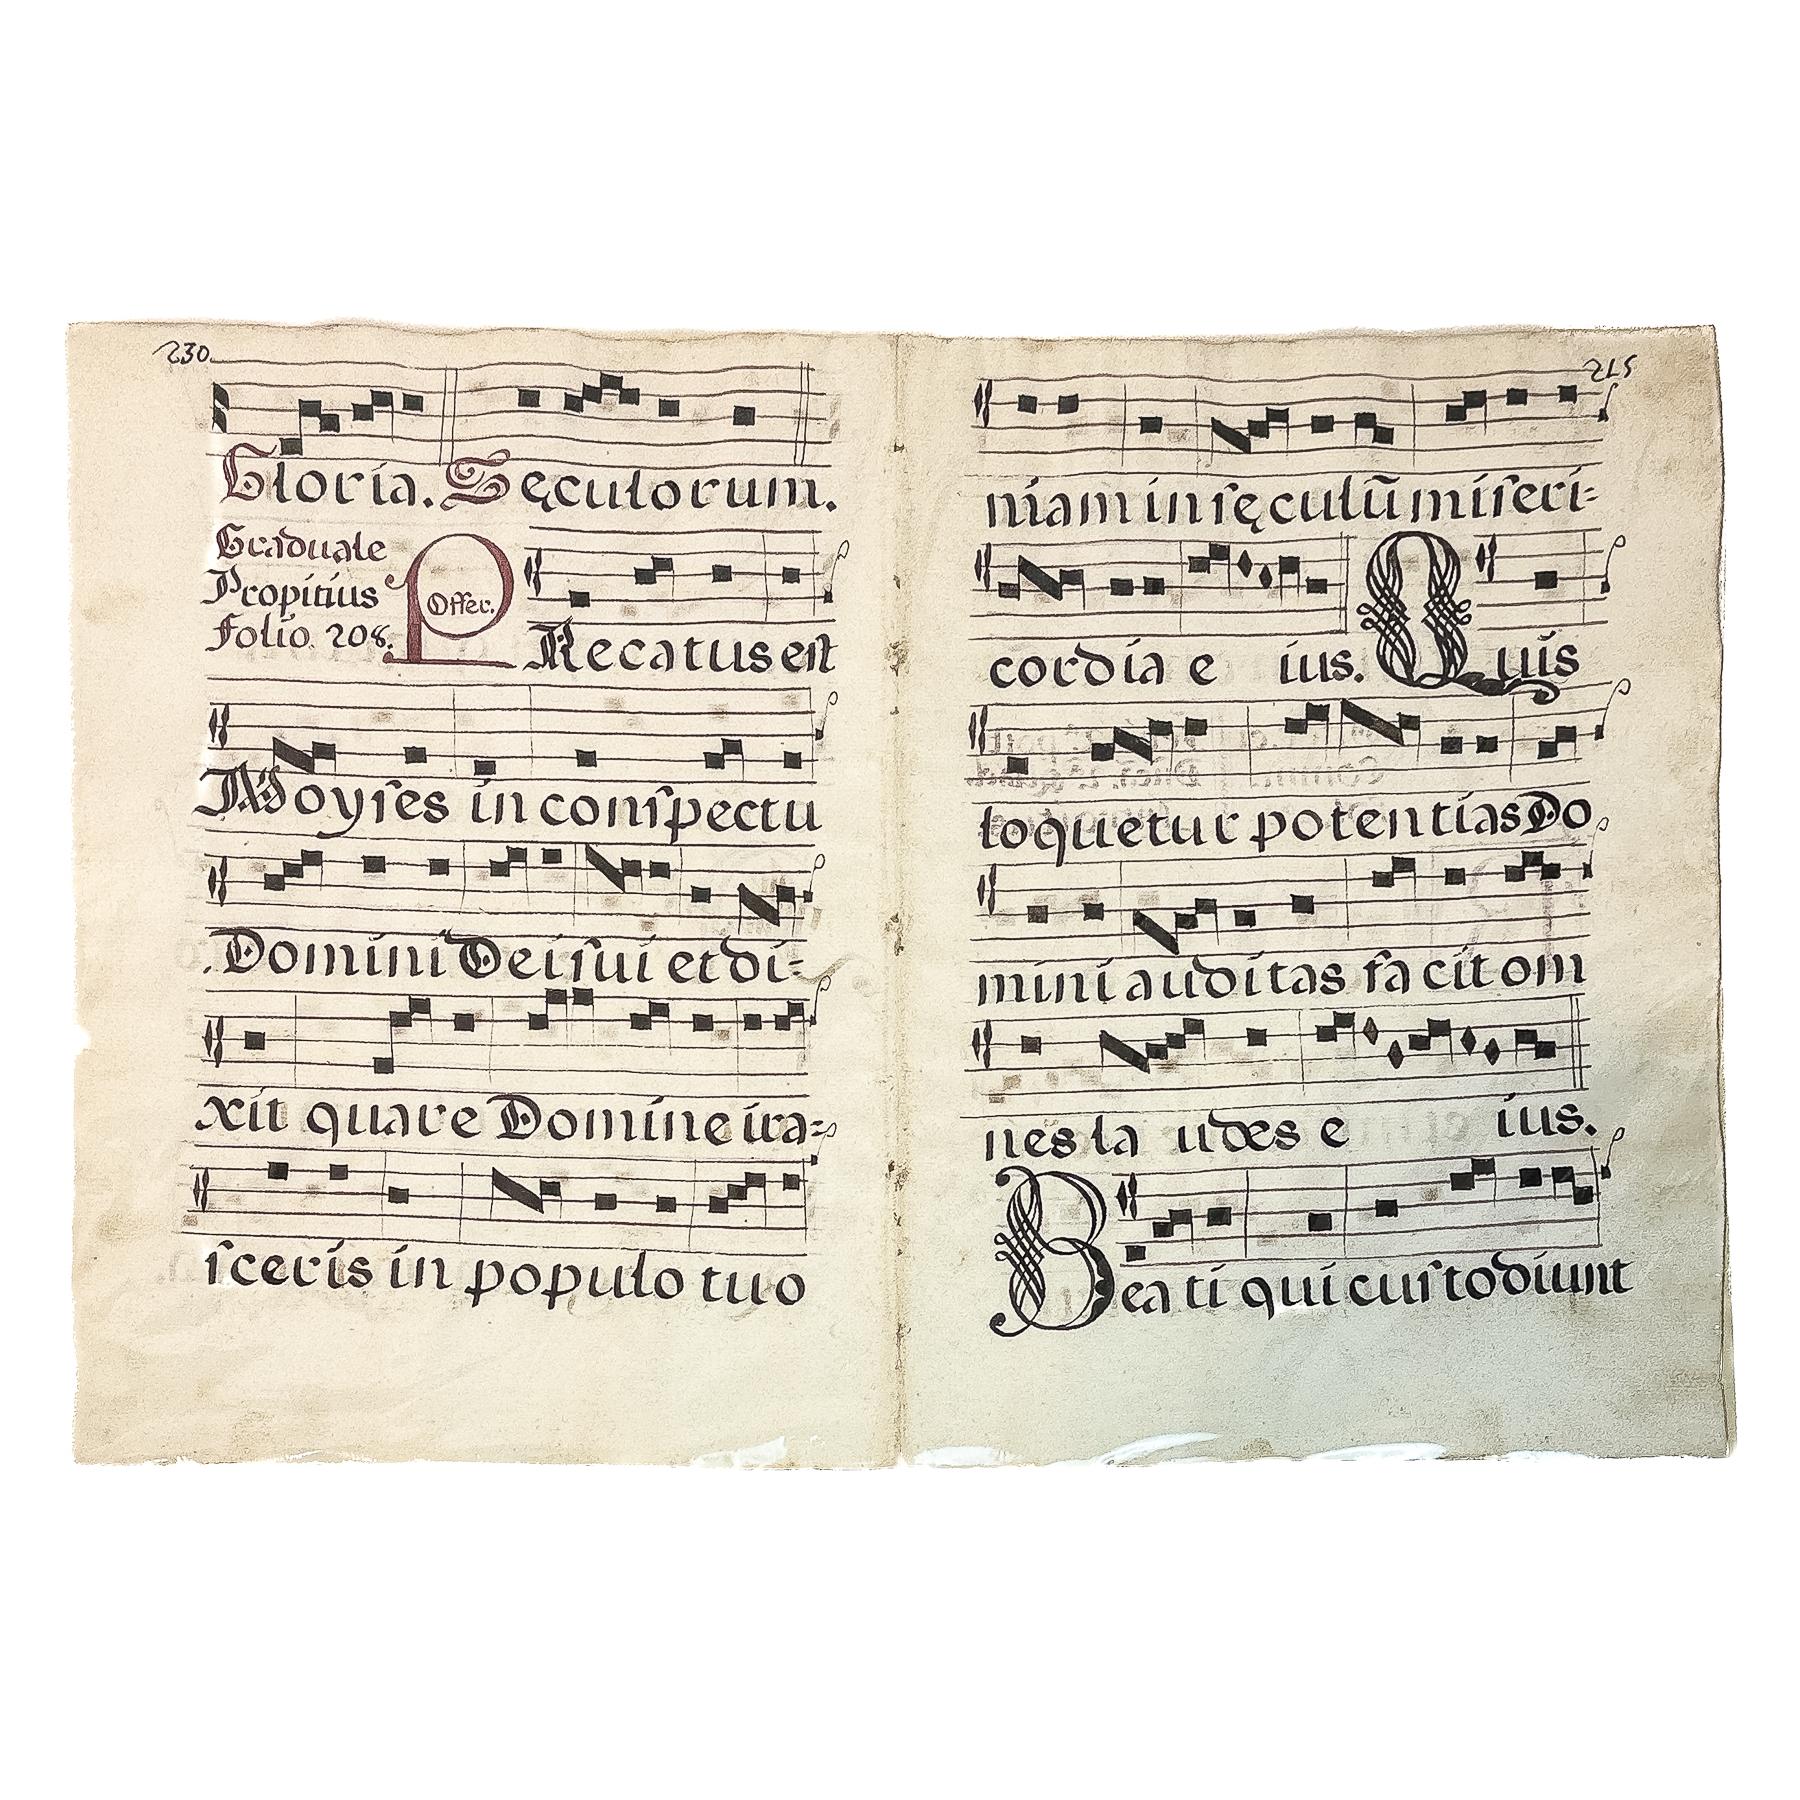 230.
Gloria. Sęculorum.
Graduale
Propitius
folio. 208.
Offer.
PRecatus est
Moyses in conspectu
Domini Dei sui et di-
xit quare Domine ira-
sceris in populo tuo
215
niam in sęculũ miseri-
cordia e ius. Quis
loquetur potentias Do
mini auditas facit om
nes la udes e ius.
Beati qui custodiunt